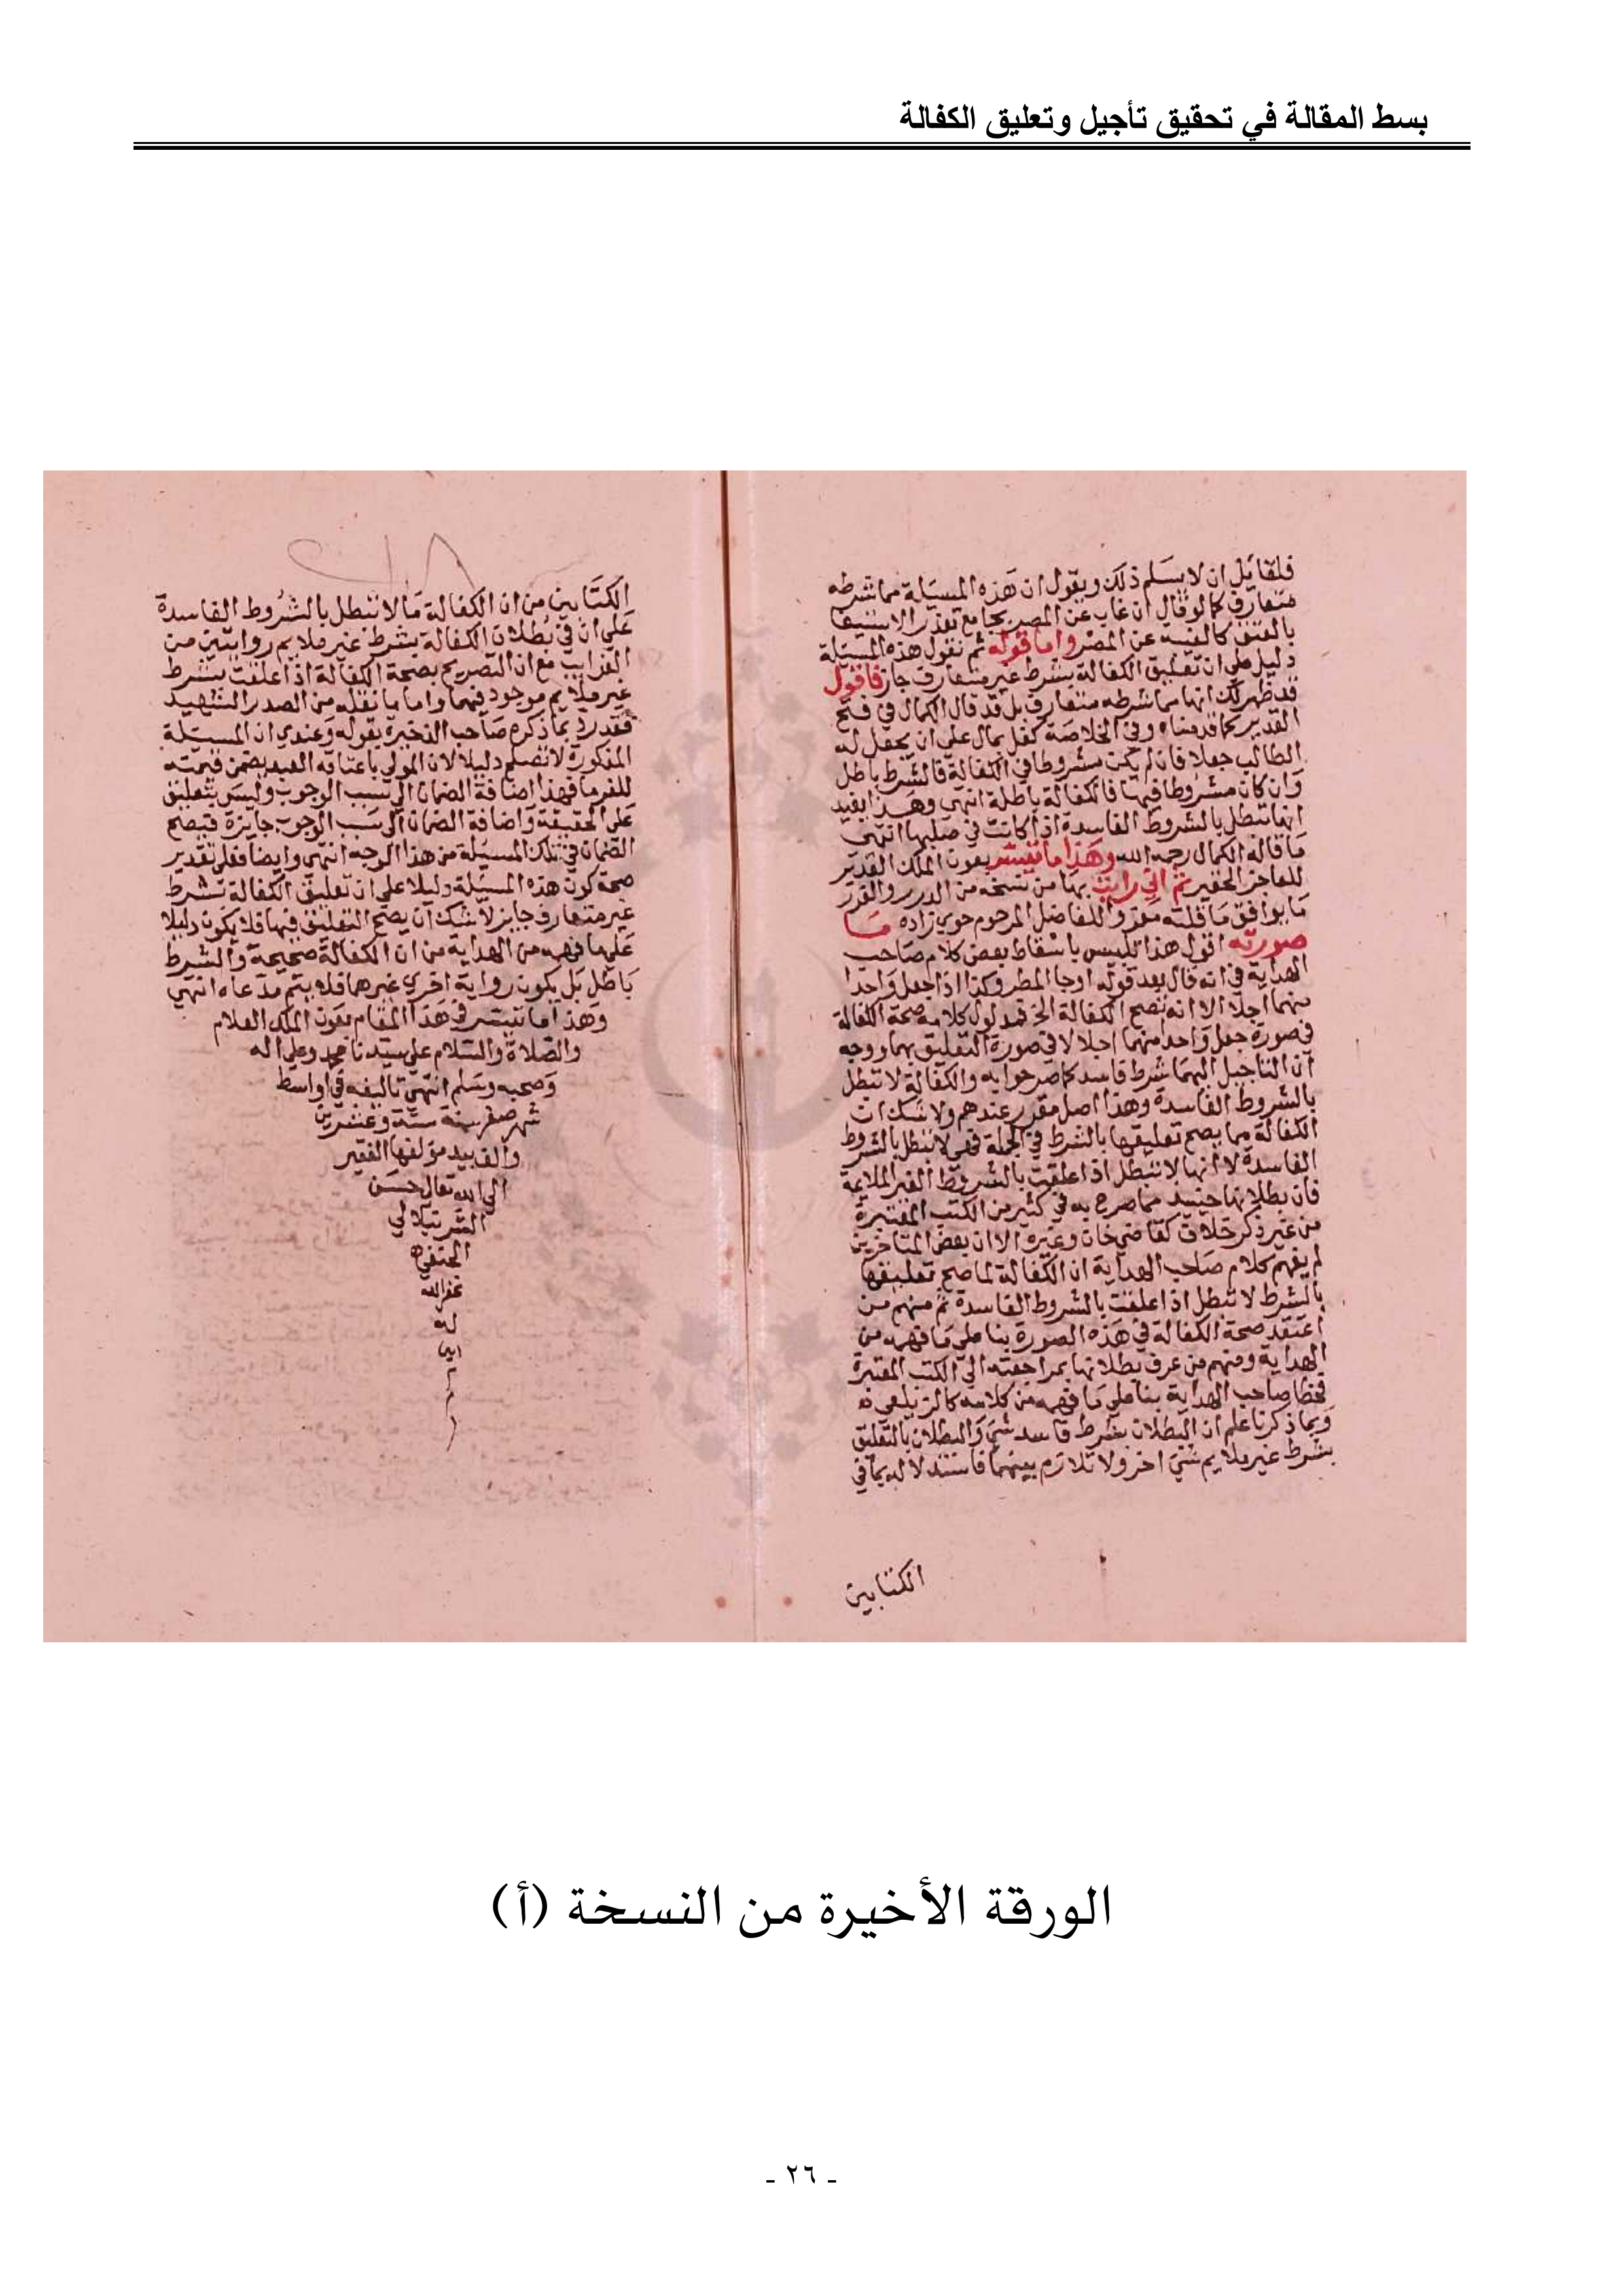 بسط المقالة في تحقيق تأجيل وتعليق الكفالة
فلقائل ان لا يسلم ذلك ويقول ان هذه المسيلة مما شرطه
متعارف كما لو قال ان غاب عن المصر بجامع تعذر الاستيفا
بالعتق كالغيبه عن المصر واما قوله ثم نقول هذه المسيلة
دليل علي ان تعليق الكفالة بشرط غير متعارف جاز فاقول
قد ظهر لك انها مما شرطه متعارف بل قد قال الكمال في فتح
القدير كما قدمناه وفي الخلاصة كفل بمال علي ان يجعل له
الطالب جعلا فان لم يكن مشروطا في الكفالة فالشرط باطل
وان كان مشروطا فيها فالكفالة باطلة انتهي وهذا يفيد
انها تبطل بالشروط الفاسدة اذا كانت في صلبها انتهي
ما قاله الكمال رحمه الله وهذا ما تيسر بعون الملك القدير
للعاجز الحقير ثم اني رايت بهامن نسخه من الدرر والغرر
ما يوافق ما قلته معزوا للفاضل المرحوم جوي زاده ما
صورته اقول هذا تلبيس باسقاط بعض كلام صاحب
الهداية في انه قال بعد قوله اوجا المطر وكذا اذا جعل واحدا
منهما اجلا الا انه تصح الكفالة الخ فمدلول كلامه صحة الكفالة
في صورة جعل واحد منهما اجلا لا في صورة التعليق بهما ووجه
ان التاجيل اليهما شرط فاسد كما صر جوابه والكفالة لا تبطل
بالشروط الفاسدة وهذا اصل مقرر عندهم ولا شك ان
الكفالة مما يصح تعليقها بالشرط في الجملة فهي لا تبطل بالشروط
الفاسدة لا انها لا تبطل اذا علقت بالشروط الغير الملايمة
فان بطلانها حنييد مما صرح به في كثير من الكتب المعتبرة
من غير ذكر خلاف كقاضي خان وغيره الا ان بعض المتاخرين
لم يفهم كلام صاحب الهداية ان الكفالة لما صح تعليقها
بالشرط لا تبطل اذا علقت بالشروط الفاسدة ثم منهم من
اعتقد صحة الكفالة في هذه الصورة بنا علي ما فهمه من
الهداية ومنهم من عرف بطلانها بمراجعته الي الكتب المعتبرة
فخطا صاحب الهداية بنا علي ما فهمه من كلامه كالزيلعي
وبما ذكرنا علم ان البطلان بشرط فاسد شي والبطلان بالتعليق
بشرط غير ملايم شي اخر ولا تلازم بينهما فاستدلاله بما في
الكتابين
الكتابين من ان الكفالة ما لا تبطل بالشروط الفاسدة
علي ان في بطلان الكفالة بشرط غير ملايم روايتين من
الغرايب مع ان التصريح بصحة الكفالة اذا علقت بشرط
غير ملايم موجود فيهما واما ما نقله من الصدر الشهيد
فقد رد بما ذكره صاحب الذخيرة بقوله وعندي ان المسيلة
المذكورة لا تصلح دليلا لان المولي باعتاقه العبد يضمن قيمته
للغرما فهذا اضافة الضمان الي سبب الوجوب وليس بتعليق
علي الحقيقة واضافة الضمان الي سبب الوجوب جايزة فيصح
الضمان في تلك المسيلة من هذا الوجه انتهي وايضا فعلي تقدير
صحة كون هذه المسيلة دليلا علي ان تعليق الكفالة بشرط
غير متعارف جايز لا شك ان يصح التعليق فيها فلا يكون دليلا
علي ما فهمه من الهداية من ان الكفالة صحيحة والشرط
باطل بل يكون رواية اخري غيرهما فلا يتم مدعاه انتهي
وهذا ما تيسر في هذا المقام بعون الملك العلام
والصلاة والسلام علي سيدنا محمد وعلي اله
وصحبه وسلم انتهي تاليفه في اواسط
شهر صفر سنة ستة وعشرين
والف بيد مؤلفها الفقير
الي الله تعالي حسن
الشرنبلالي
الحنفي
غفر الله
له
امين
الورقة الأخيرة من النسخة (أ)
- ٢٦ -